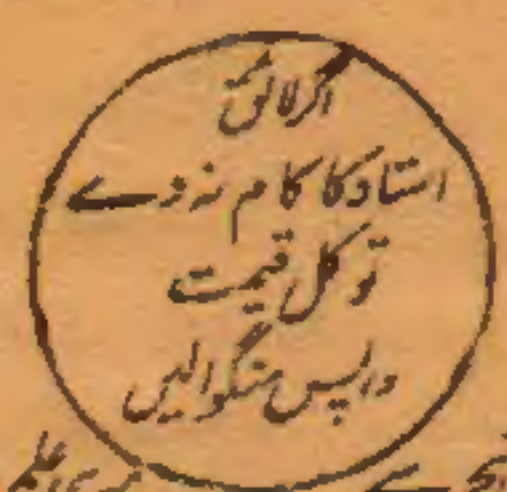 اگر لائق
استاد کا کام نہ دے
تو کل قیمت
واپس منگوالیں